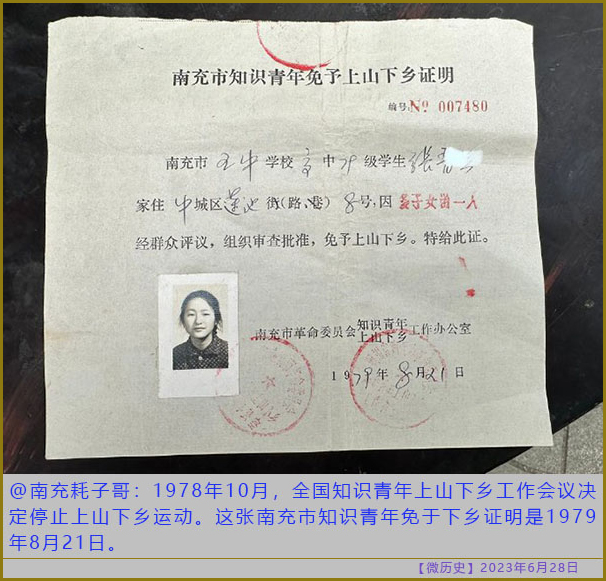 南充市知识青年免予上山下乡证明
编号:№ 007480
南充市 五中 学校 高 中 79 级学生 张
家住 中 城区 莲池 街(路、巷) 8 号,因 多子女留一人
经群众评议,组织审查批准,免予上山下乡。特给此证。
南充市革命委员会知识青年上山下乡工作办公室
1979年 8月21日
@南充耗子哥:1978年10月,全国知识青年上山下乡工作会议决
定停止上山下乡运动。这张南充市知识青年免于下乡证明是1979
年8月21日。
【微历史】2023年6月28日